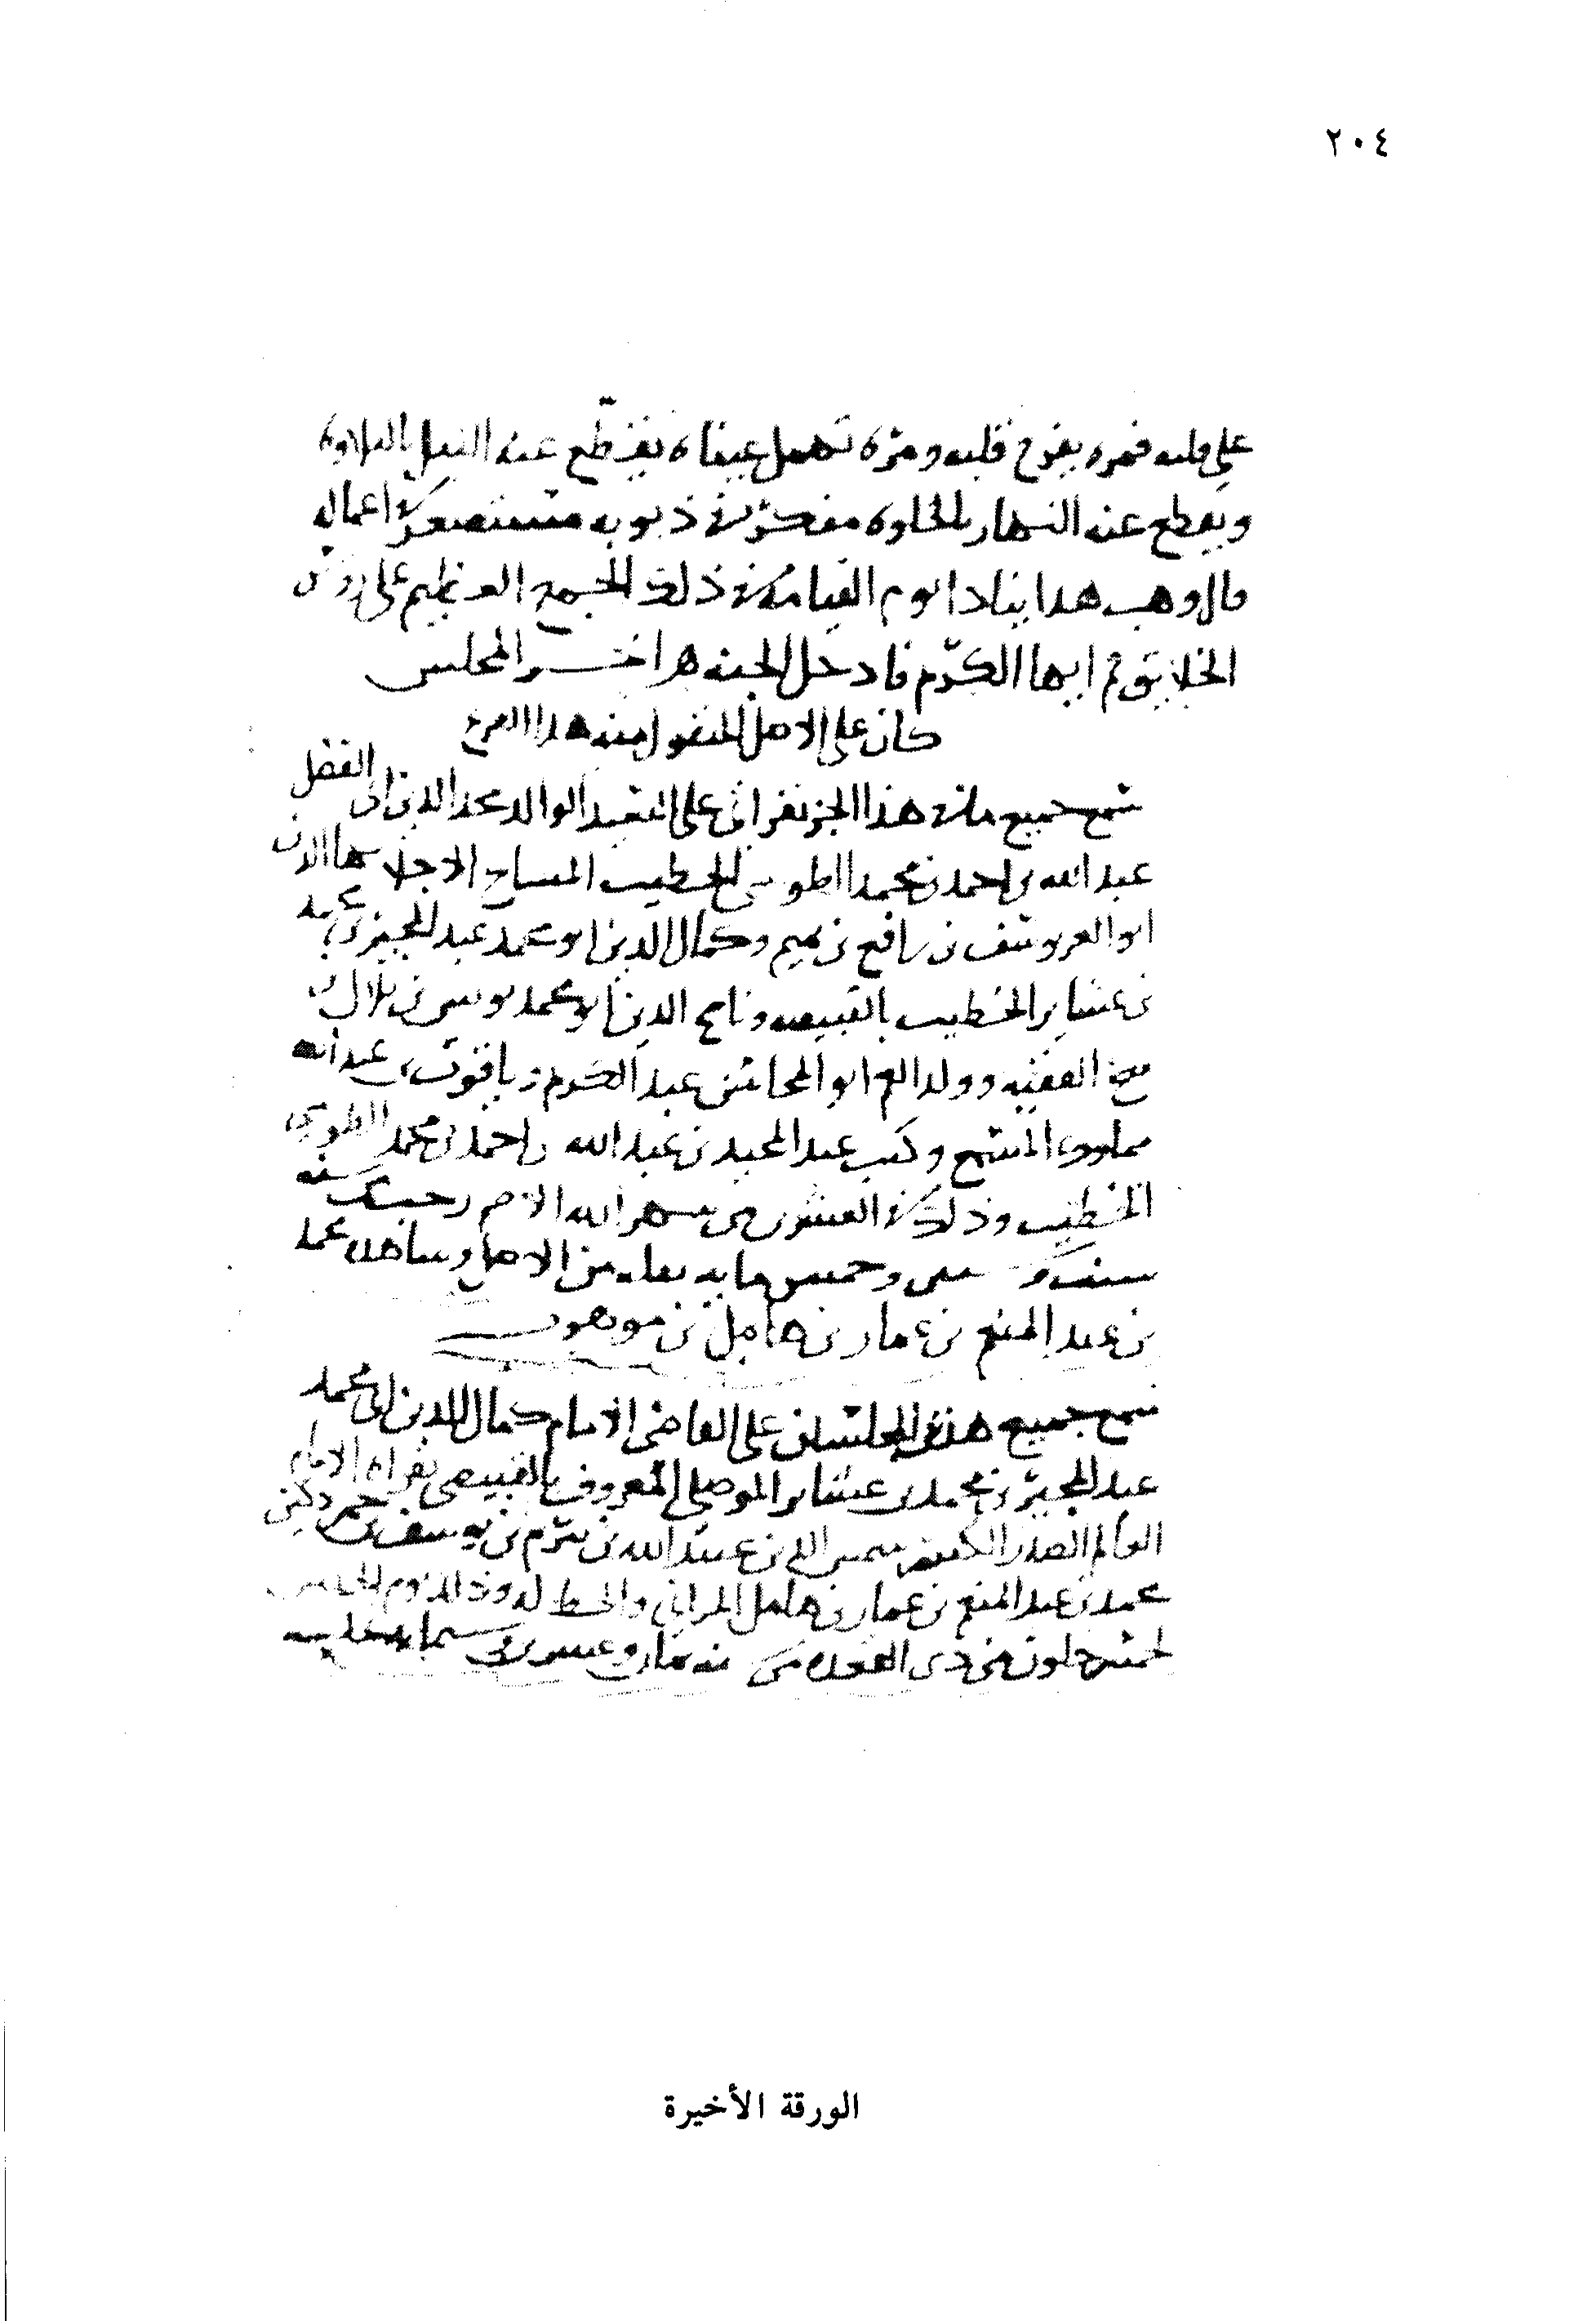 ٢٠٤
على قلبه فمره يفرح قلبه ومره تهمل عيناه يقطع عنه الليل بالتلاوه
ويقطع عنه النهار بالخلوه مفكرا في ذنوبه مستصغرا اعماله
قال وهب هذا ينادا يوم القيامة في ذلك الجمع العظيم على روس
الخلايق قم ايها الكريم فادخل الجنه هر اخــر المجلس
كان على الاصل المنقول منه هذا الفرع
سمع جميع ما في هذا الجز بقراتي على الفقيد الوالد مجد الدين ابي الفضل
عبد الله بن احمد بن محمد الطوسي الخطيب المسايخ الاجلا بها الدين
ابو العز يوسف بن رافع بن تميم وكمال الدين ابو محمد عبد المجيز بن محمد
بن عشاير الخطيب بالقبيصه وتاج الدين ابو محمد يونس بن بلال بن
الفقيه وولد العم ابو المحاسن عبد الكريم وياقوت بن عبد الله
مملوك المسمع وكتب عبد المجيد بن عبد الله بن احمد بن محمد الطوسي
الخطيب وذلك في العشرين من شهر الله الاصم رجب سنة
وخمس مايه نقله من الاصل وشاهده محمد
بن عبد المنعم بن عمار بن هامل بن موهوب
سمع جميع هذين المجلسين على القاضي الامام كمال الدين ابي محمد
عبد المجيز بن محمد بن عشاير الموصلي المعروف بالقبيصي بقراه الامام
العالم الصدر الكبير شمس الدين عبد الله بن بيرم بن يوسف بن خمردكين
محمد بن عبد المنعم بن عمار بن هامل الحراني والخط له وذلك يوم الخميس
لخمس خلون من ذي القعده من سنه ثمان وعشرين وستمايه بحلب
الورقة الأخيرة